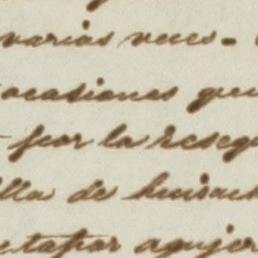 varias veces.
ocasiones que
por la reseq
lla de huisach
etapar agujer